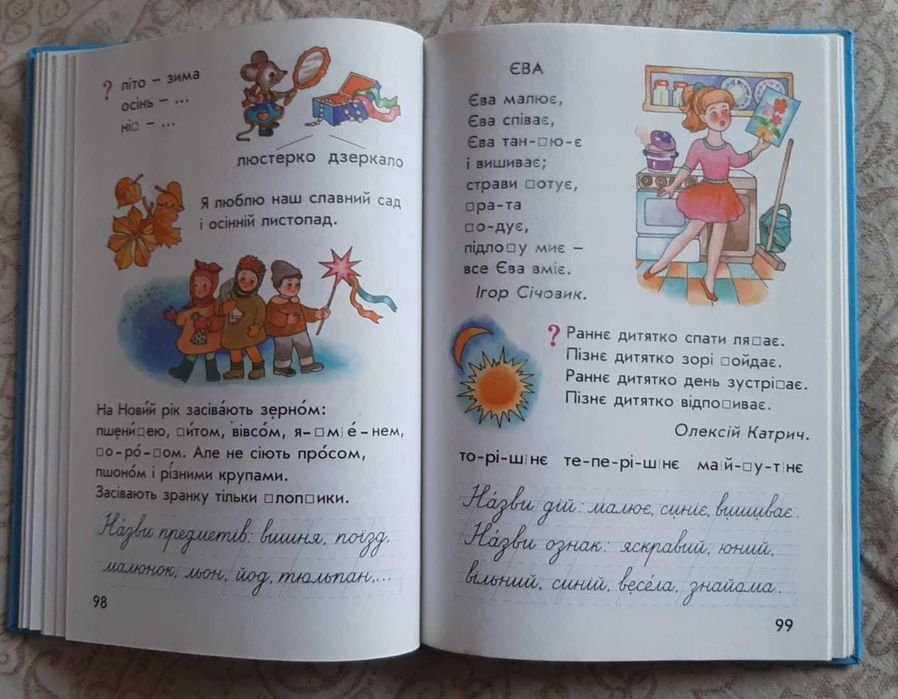 ? літо – зима
осінь – ...
ні□ – ...
люстерко дзеркало
Я люблю наш славний сад
і осінній листопад.
На Нови́й рік засіва́ють зерно́м:
пшени́□ею, □и́том, вівсо́м, я-□мі́є-нем,
□о-ро́-□ом. Але не сіють про́сом,
пшоно́м і рі́зними крупами.
Засівають зранку тільки □лоп□ики.
На́зви предметів: вишня, поїзд,
малюнок, льон, йод, тюльпан,...
98
ЄВА
Єва малює,
Єва співає,
Єва тан-□ю-є
і вишиває;
страви □отує,
□ра-та
□о-дує,
підло□у миє –
все Єва вміє.
Ігор Січовик.
? Раннє дитятко спати ля□ає.
Пізнє дитятко зорі □ойдає.
Раннє дитятко день зустрі□ає.
Пізнє дитятко відпо□иває.
Олексій Катрич.
то-рі-шнє те-пе-рі-шнє май-□у-тнє
На́зви дій: малює, синіє, вишиває.
На́зви ознак: яскравий, юний,
вільний, синій, весе́ла, знайома.
99